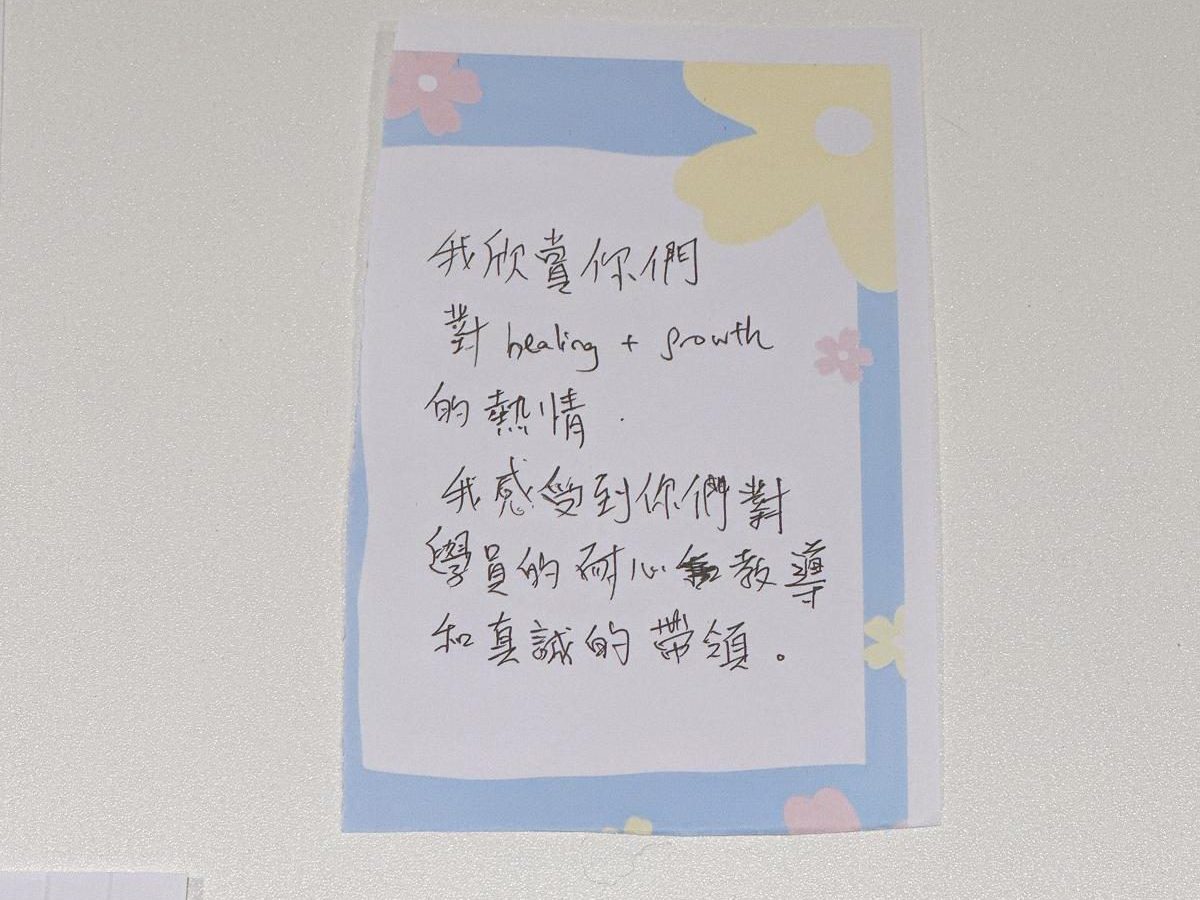 我欣賞你們
對 healing + growth
的熱情.
我感受到你們對
學員的耐心教導
和真誠的帶領。